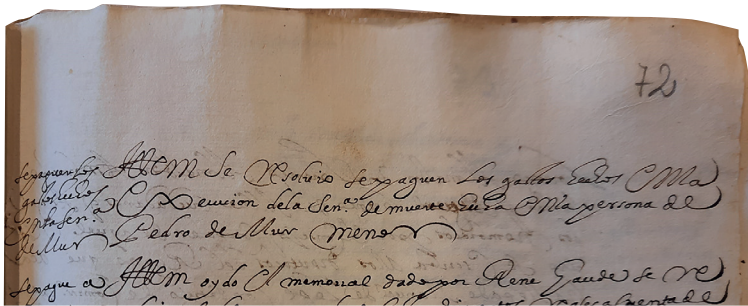 72
se paguen los
gastos hechos
en la Sen.ª
de Mur
Ittem Se resolvio se paguen los gastos hechos en la
Execucion de la Sen.ª de muerte hecha en la persona de
Pedro de Mur menor
se pague a
Ittem oydo el memorial dado por Rene Gaude se re